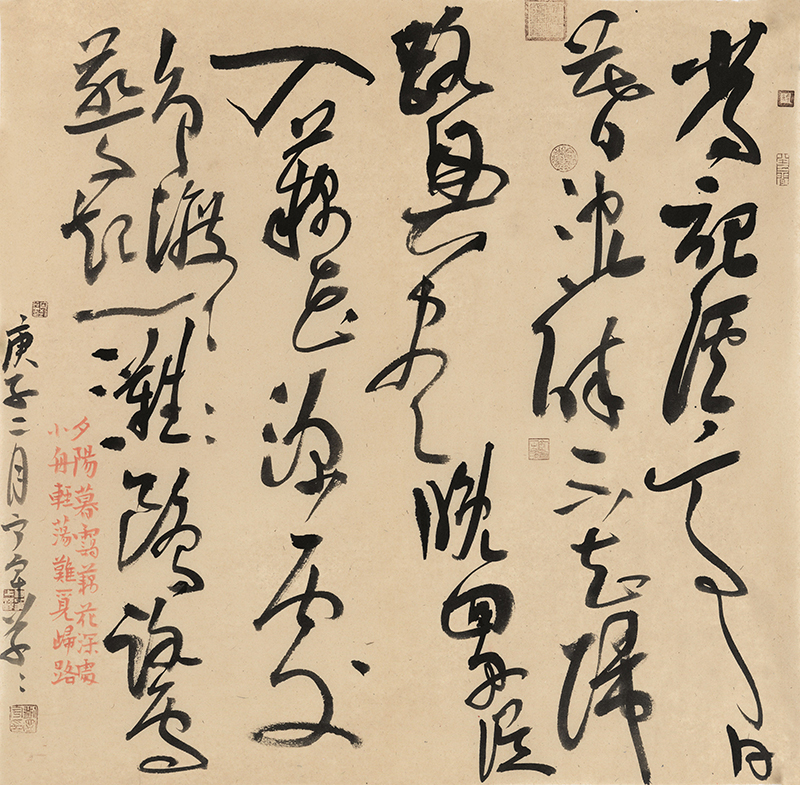 常記溪亭日
暮沈醉不知歸
路興盡晚回舟誤
入藕花深處
爭渡〻〻
驚起一
灘鷗鷺
夕陽暮靄藕花深處
小舟輕蕩難覓歸路
庚子二月